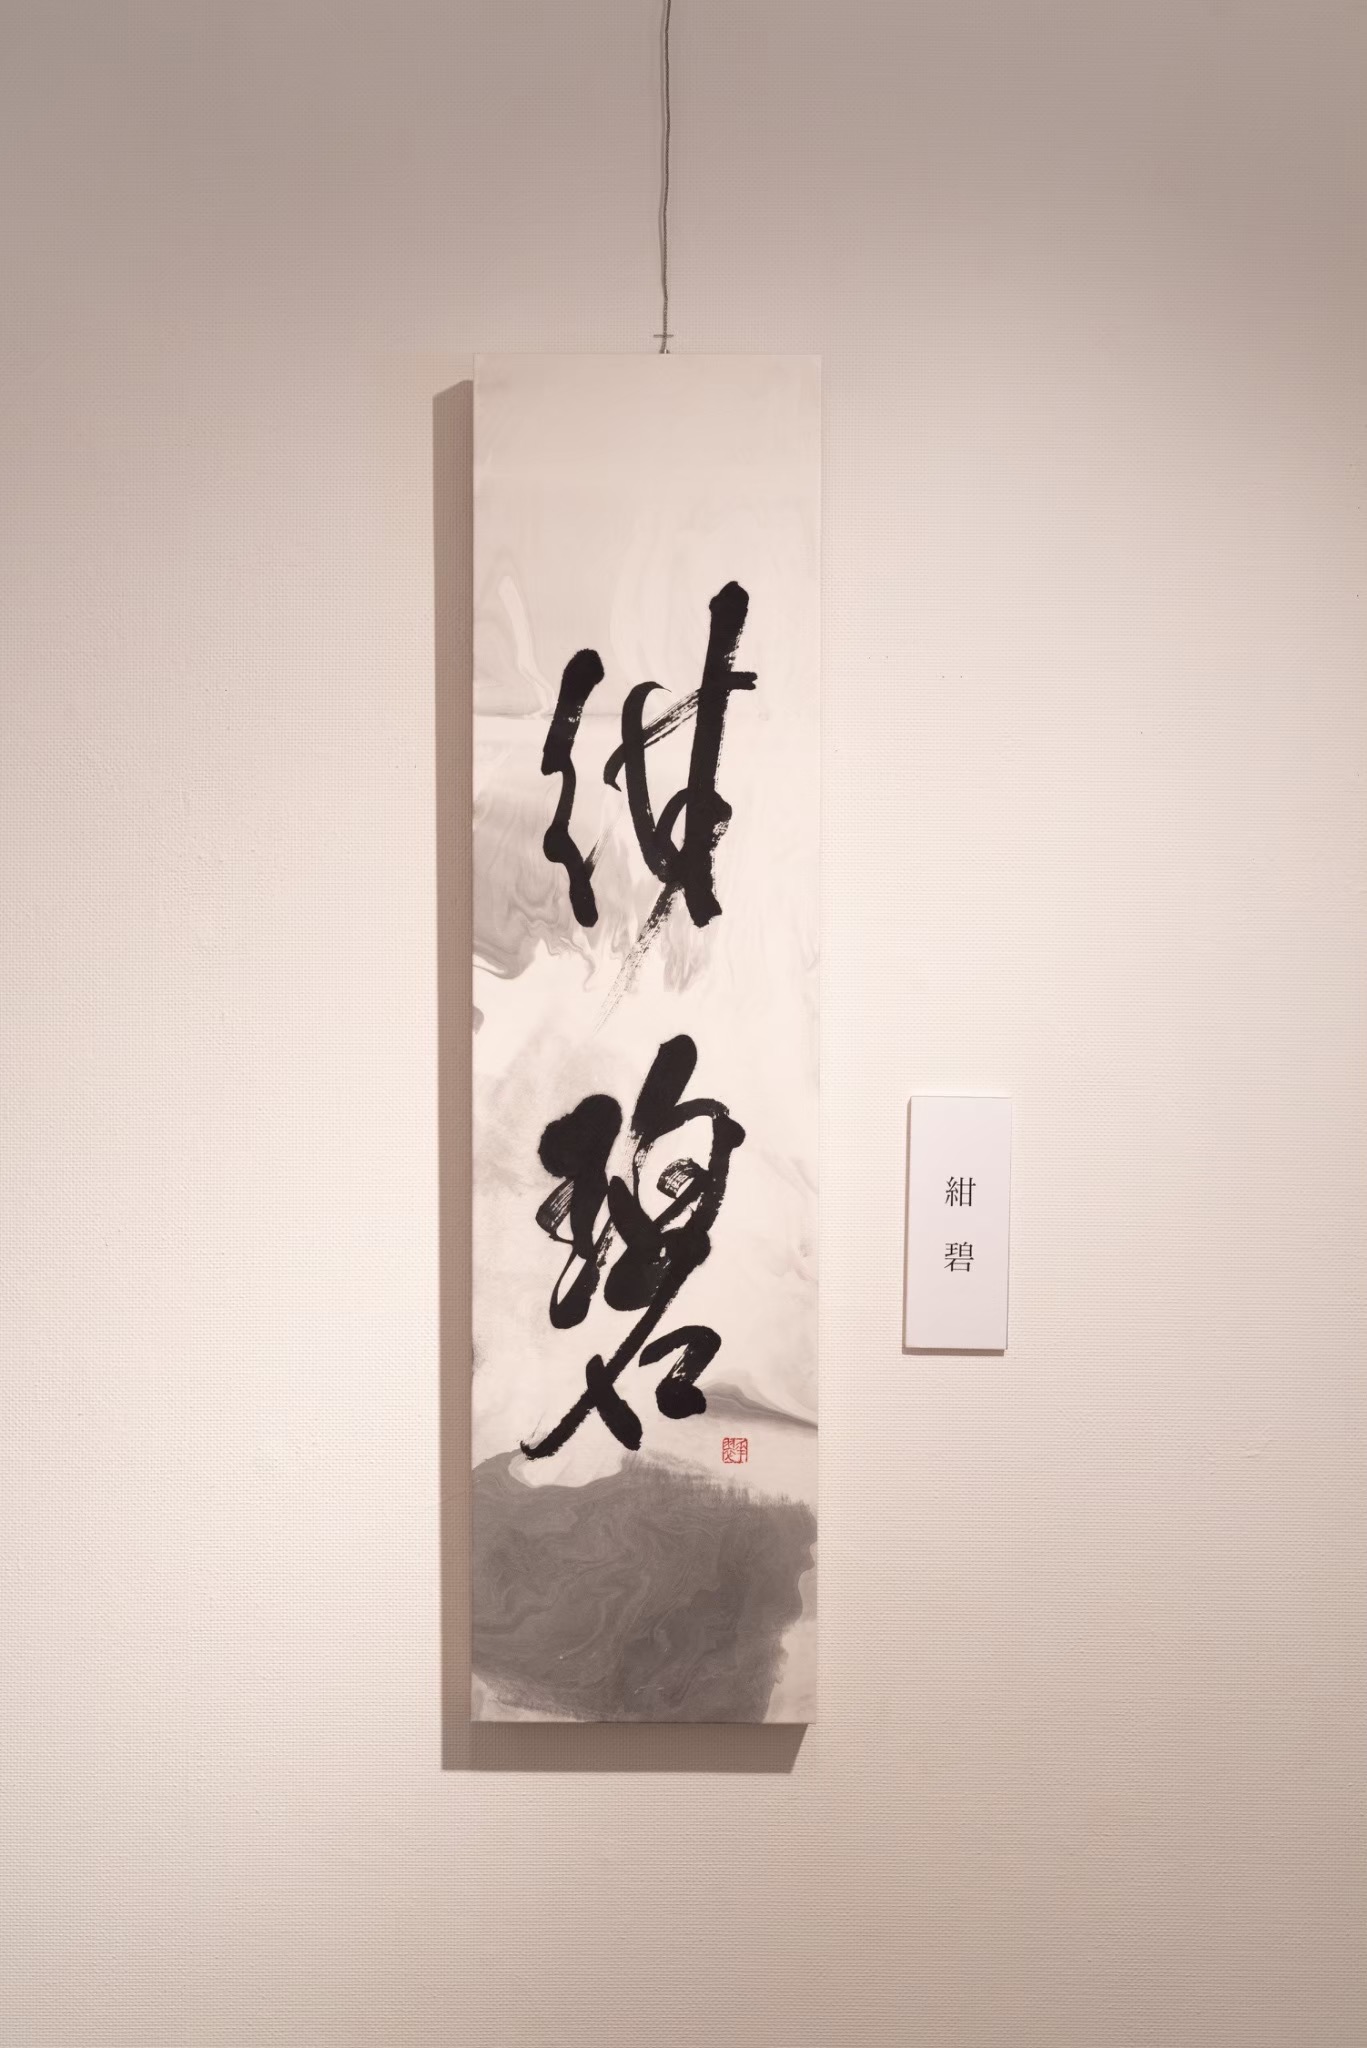 紺碧
紺碧